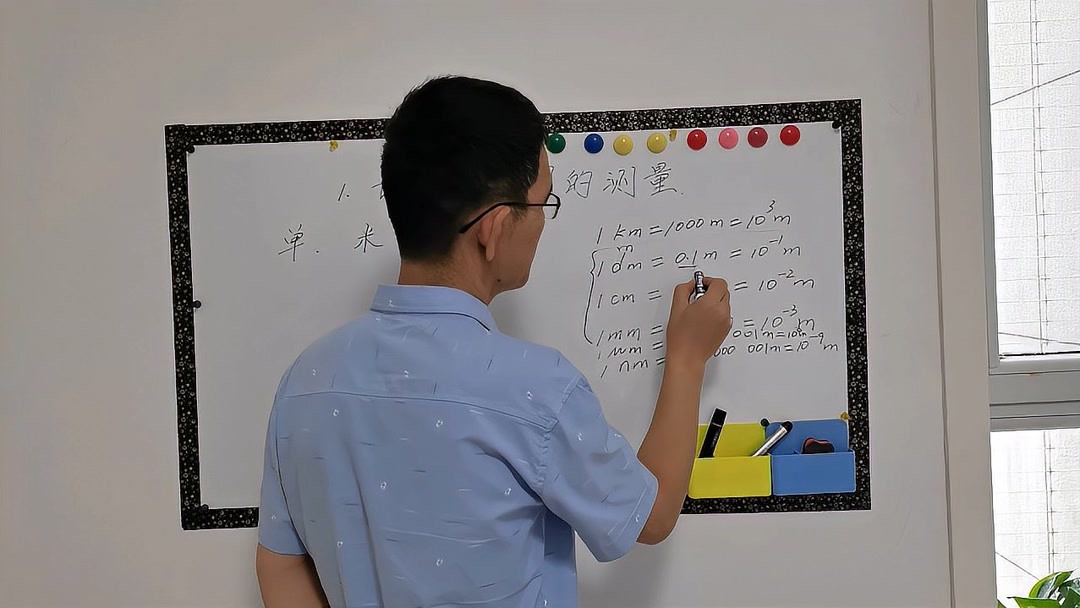 1. 的测量
单. 米
1 km = 1000 m = 10³m
m
1 dm = 0.1 m = 10⁻¹m
1 cm = = 10⁻²m
1 mm = = 10⁻³m
1 μm = 001m = 10
1 nm = 000 001m = 10⁻⁹m